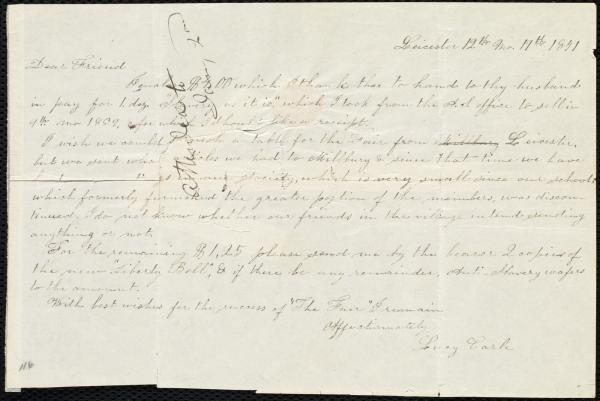 Leicester 12th Mo. 17th 1841
Dear Friend
I send $3,00 which I thank thee to hand to thy husband
in pay for 1 doz. as it is," which I took from the A.S. office to sell in
4th mo 1839, & for which I should like a receipt.
I wish we could furnish a table for the Fair from Millbury Leicester,
but we sent what articles we had to Millbury & since that time we have
our society, which is very small since our school
which formerly furnished the greater portion of the members, was discon-
tinued. I do not know whether our friends in this village intend sending
anything or not.
For the remaining $1,25 please send me by the bearer 2 copies of
the new "Liberty Bell", & if there be any remainder, Anti-Slavery wafers
to the amount.
With best wishes for the success of "The Fair" I remain
Affectionately
Lucy Earle
116